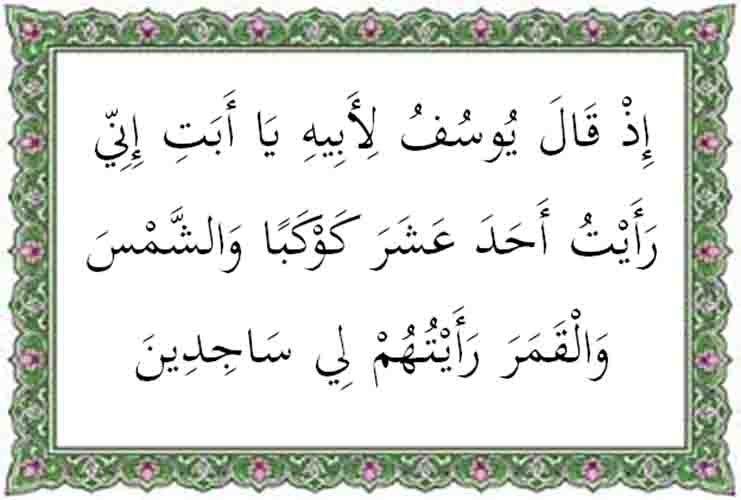 إِذْ قَالَ يُوسُفُ لِأَبِيهِ يَا أَبَتِ إِنِّي
رَأَيْتُ أَحَدَ عَشَرَ كَوْكَبًا وَالشَّمْسَ
وَالْقَمَرَ رَأَيْتُهُمْ لِي سَاجِدِينَ